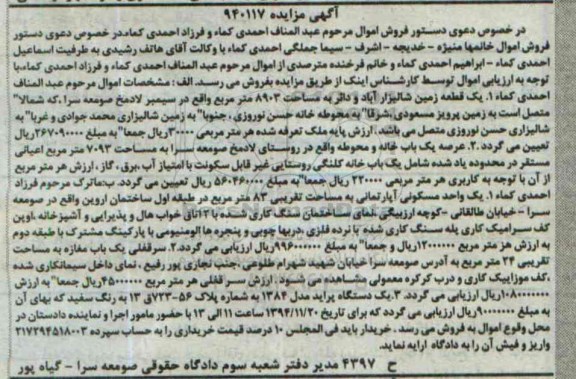 آگهی مزایده ۹۴۰۱۱۷
در خصوص دعوی دستور فروش اموال مرحوم عبد المناف احمدی کماء و فرزاد احمدی کماء،در خصوص دعوی دستور
فروش اموال خانمها منیژه - خدیجه - اشرف - سیما جملگی احمدی کماء با وکالت آقای هاتف رشیدی به طرفیت اسماعیل
احمدی کماء - ابراهیم احمدی کماء و خانم فرخنده مترصدی از اموال مرحوم عبد المناف احمدی کماء و فرزاد احمدی کماء،با
توجه به ارزیابی اموال توسط کارشناس اینک از طریق مزایده بفروش می رسد. الف : مشخصات اموال مرحوم عبد المناف
احمدی کماء ۱. یک قطعه زمین شالیزار آباد و دائر به مساحت ۸۹۰۳ متر مربع واقع در سیمبر لادمخ صومعه سرا ،که شمالا"
متصل است به زمین پرویز مسعودی ،شرقا" به محوطه خانه حسن نوروزی ، جنوبا" به زمین شالیزاری محمد جوادی و غربا" به
شالیزاری حسن نوروزی متصل می باشد. ارزش پایه ملک تعرفه شده هر متر مربعی ۳۰۰۰۰ریال جمعا" به مبلغ ۲۶۷۰۹۰۰۰۰ریال
تعیین می گردد .۲. عرصه یک باب خانه و محوطه واقع در روستای لادمخ صومعه سرا به مساحت ۷۰۹۳ متر مربع اعیانی
مستقر در محدوده یاد شده شامل یک باب خانه کلنگی روستایی غیر قابل سکونت با امتیاز آب ،برق ، گاز ، ارزش هر متر مربع
از آن با توجه به کاربری هر متر مربعی ۲۲۰۰۰۰ ریال جمعا" به مبلغ ۱۵۶۰۴۶۰۰۰۰ ریال تعیین می گردد. ب:ماترک مرحوم فرزاد
احمدی کماء ۱. یک واحد مسکونی آپارتمانی به مساحت تقریبی ۸۳ متر مربع در طبقه اول ساختمان اروین واقع در صومعه
سرا - خیابان طالقانی -کوچه ارزبیگی ،نمای ساختمان سنگ کاری شده،با ۲ اتاق خواب هال و پذیرایی و آشپزخانه ،اوپن
کف سرامیک کاری پله سنگ کاری شده با نرده فلزی ،دربها چوبی و پنجره ها آلومنیومی با پارکینگ مشترک با طبقه دوم
به ارزش هر متر مربع ۱۲۰۰۰۰۰۰ریال و جمعا" به مبلغ ۹۹۶۰۰۰۰۰۰ریال ارزیابی می گردد.۲. سرقفلی یک باب مغازه به مساحت
تقریبی ۲۴ متر مربع به آدرس صومعه سرا خیابان شهید شهرام طلوعی ،جنب نجاری پور رفیع ، نمای داخل سیمانکاری شده
،کف موزاییک کاری و درب کرکره معمولی مشاهده می شود . ارزش سر قفلی هر متر مربع ۴۵۰۰۰۰۰۰ریال جمعا" به ارزش
۱۰۸۰۰۰۰۰۰۰ریال ارزیابی می گردد. ۳.یک دستگاه پراید مدل ۱۳۸۴ به شماره پلاک ۵۶-۷۲۳ق ۱۳ به رنگ سفید که بهای آن
به مبلغ ۹۰۰۰۰۰۰۰ریال ارزیابی می گردد که برای تاریخ ۱۳۹۴/۱۱/۲۰ ساعت ۱۱ الی ۱۳ با حضور مامور اجرا و نماینده دادستان در
محل وقوع اموال به فروش می رسد . خریدار باید فی المجلس ۱۰ درصد قیمت خریداری را به حساب سپرده ۲۱۷۲۹۴۵۱۸۰۰۳
واریز و فیش آن را به دادگاه ارایه نماید.
ح ۴۳۹۷ مدیر دفتر شعبه سوم دادگاه حقوقی صومعه سرا - گیاه پور